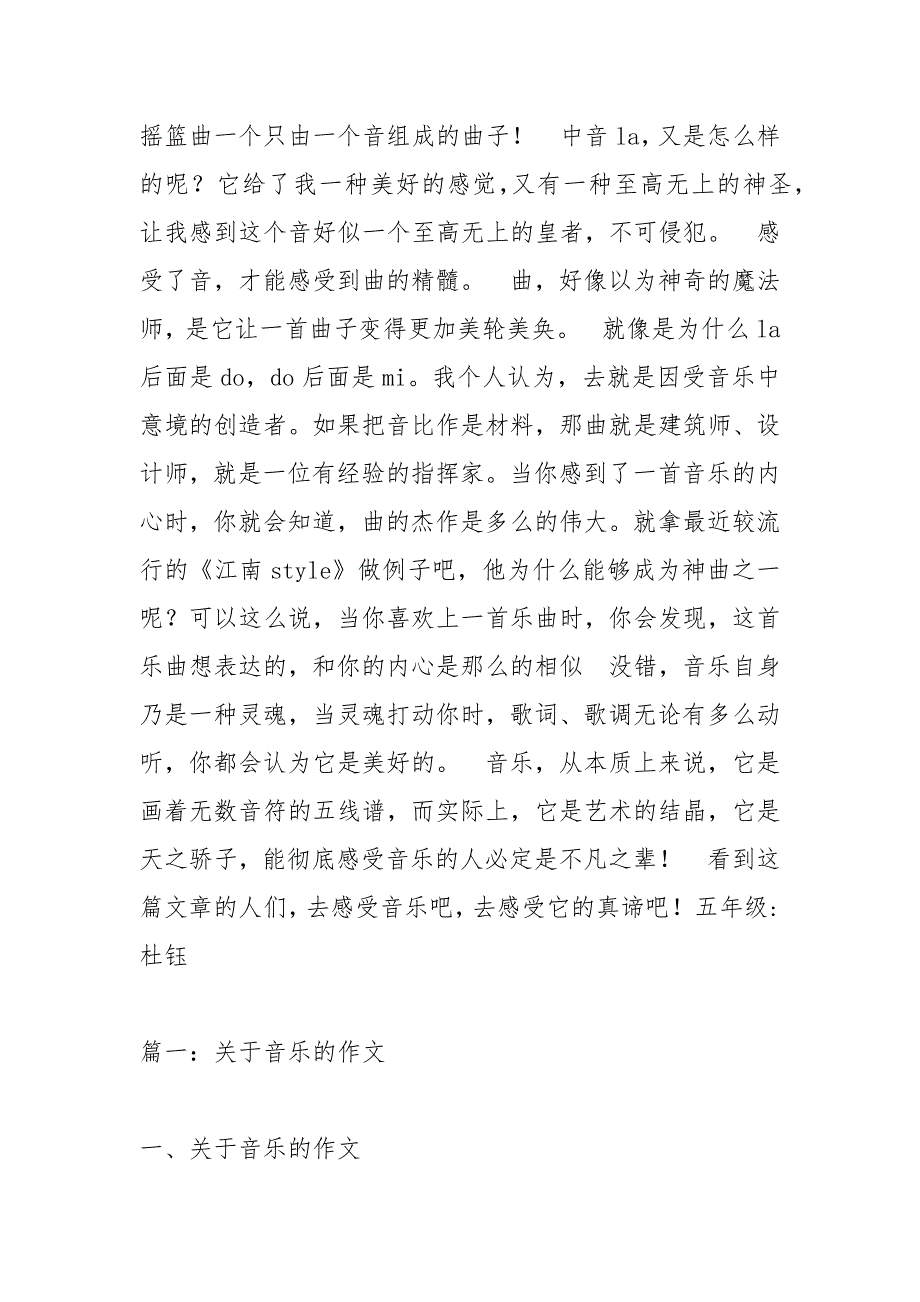 摇篮曲一个只由一个音组成的曲子！　中音 la，又是怎么样
的呢？它给了我一种美好的感觉，又有一种至高无上的神圣，
让我感到这个音好似一个至高无上的皇者，不可侵犯。　感
受了音，才能感受到曲的精髓。　曲，好像以为神奇的魔法
师，是它让一首曲子变得更加美轮美奂。　就像是为什么 la
后面是 do，do 后面是 mi。我个人认为，去就是因受音乐中
意境的创造者。如果把音比作是材料，那曲就是建筑师、设
计师，就是一位有经验的指挥家。当你感到了一首音乐的内
心时，你就会知道，曲的杰作是多么的伟大。就拿最近较流
行的《江南 style》做例子吧，他为什么能够成为神曲之一
呢？可以这么说，当你喜欢上一首乐曲时，你会发现，这首
乐曲想表达的，和你的内心是那么的相似　没错，音乐自身
乃是一种灵魂，当灵魂打动你时，歌词、歌调无论有多么动
听，你都会认为它是美好的。　音乐，从本质上来说，它是
画着无数音符的五线谱，而实际上，它是艺术的结晶，它是
天之骄子，能彻底感受音乐的人必定是不凡之辈！　看到这
篇文章的人们，去感受音乐吧，去感受它的真谛吧！五年级：
杜钰
篇一：关于音乐的作文
一、关于音乐的作文